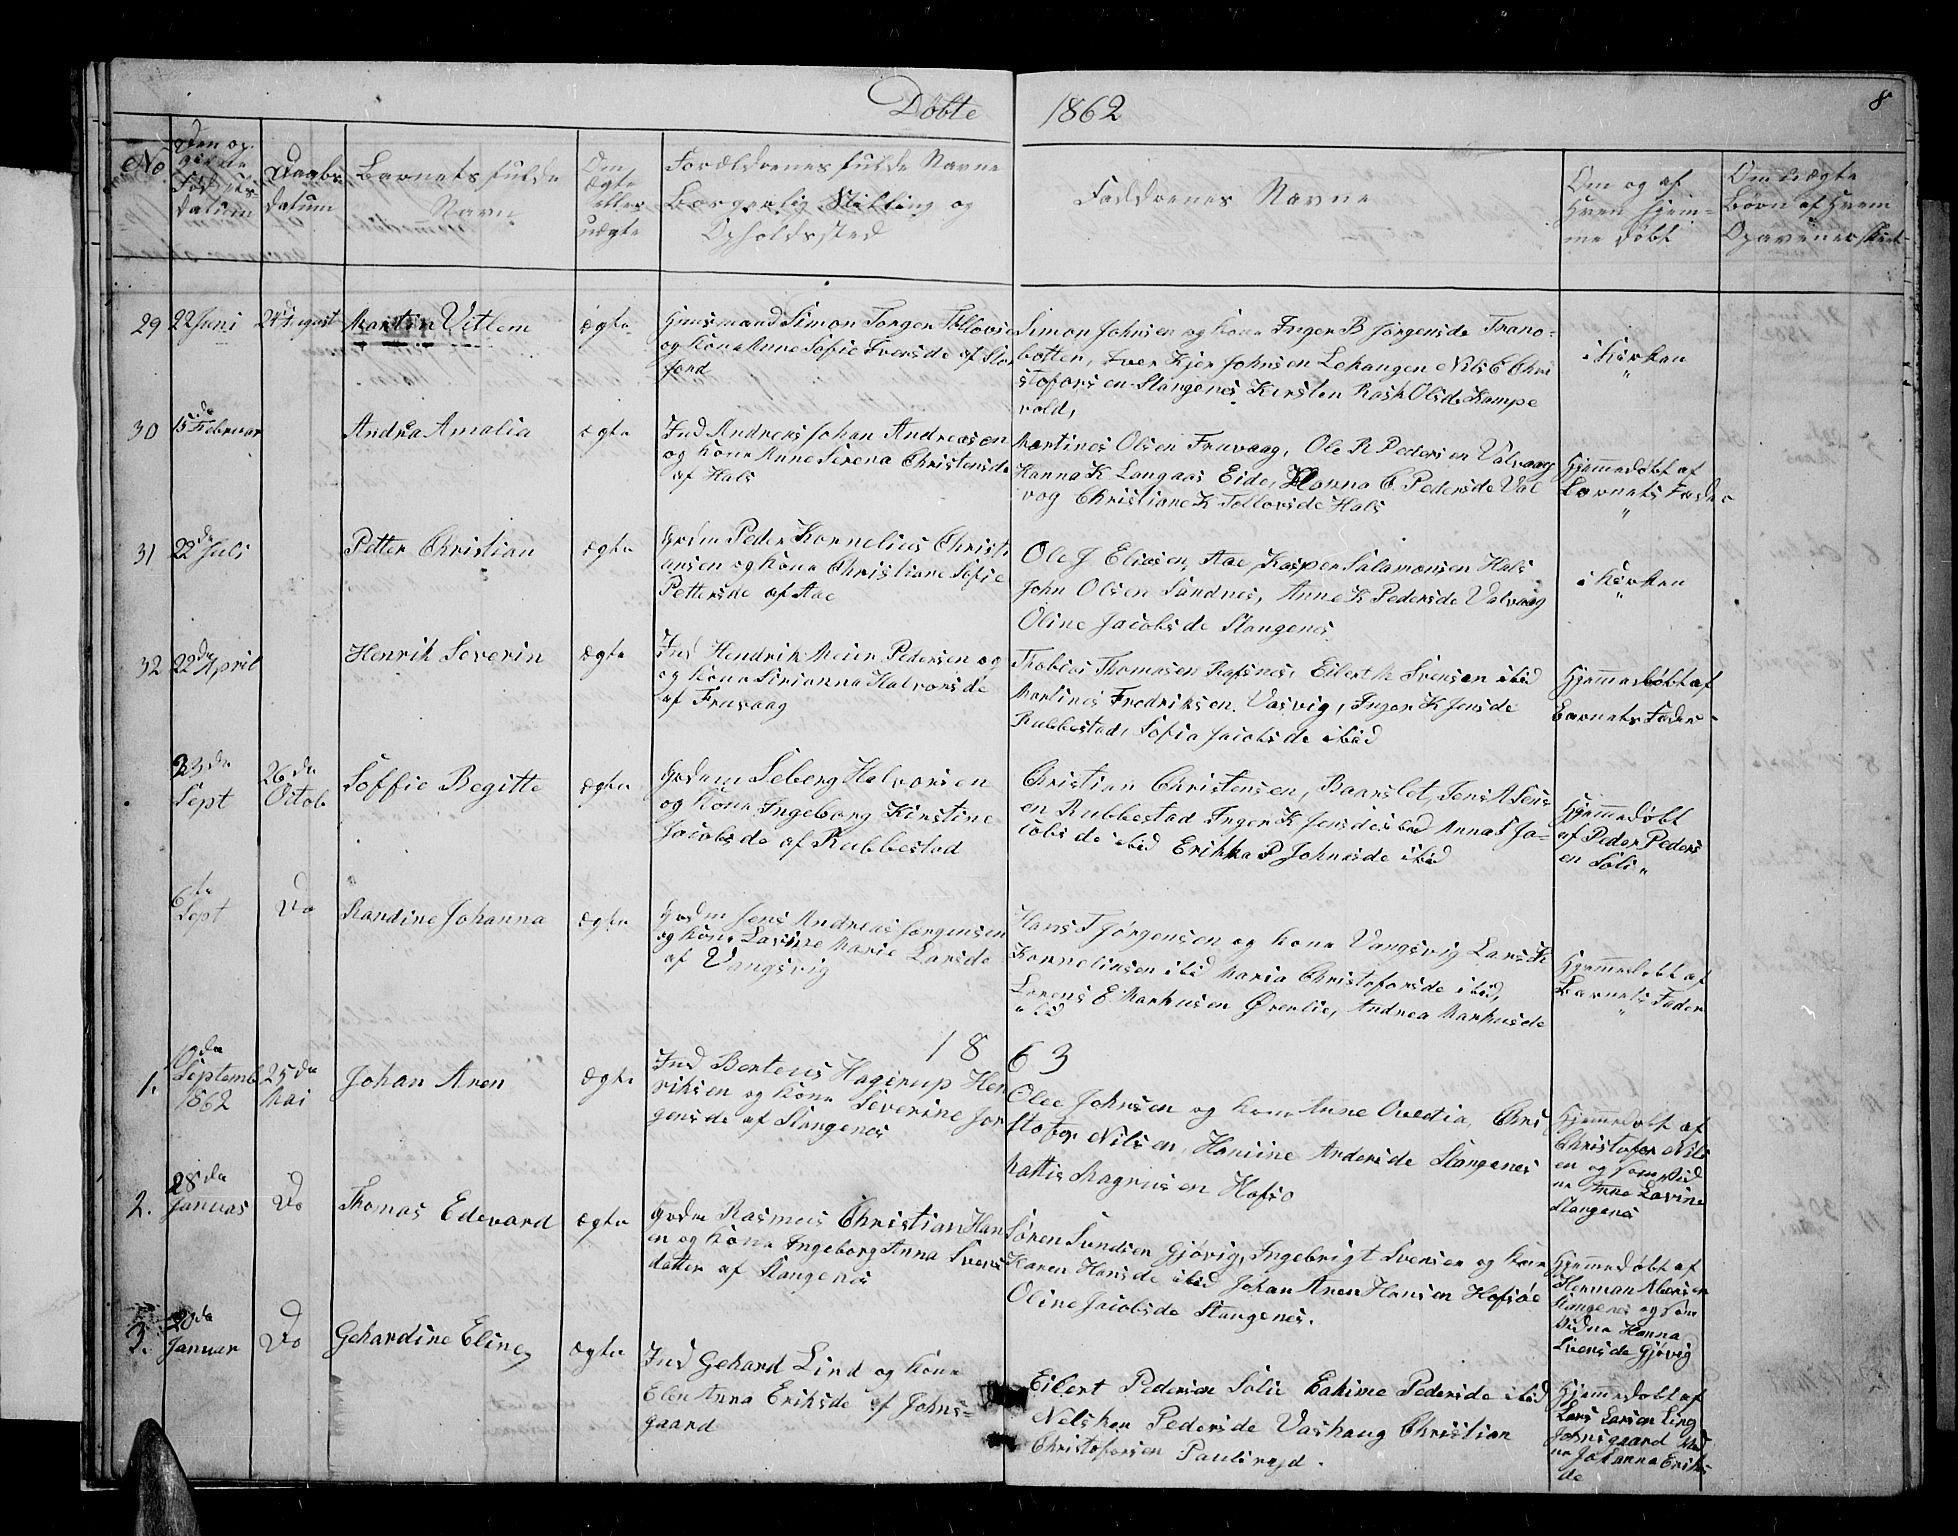 Døbte 1862
8
No
Den og
Fødsels-
datum
Daabs
datum
Barnets fulde
Navn
Om
ægte
eller
uægte
Forældrenes fulde Navne
Borgerlig Stilling og
Opholdssted
Faddrenes Navne
Om og af
Hven Hjem-
me døbt
Om Uægte
Børn af Hvem
29 22 Juni 24 August Martin Vitlem ægte
Huusmand Simon Torger Tollovse
og Kone Anne Sofie Iversde af Stor
fjord
Simon Johnsen og Kone Inger B Jørgensde Trano-
botten, Iver Kjer Johnsen Lekangen Nils C Chri
stofors en Stangenes, Kirsten Rask Olsde Kampe
vold,
i Kirken
30 15de Februar Andrea Amalia ægte
Ind Andreas Johan Andreasen
og Kone Anne Serena Christensde
af Hals
Martines Olsen Fruvaag, Ole R Pedersen Valvaag
Hanna K Langaas Eide, Hanna C. Pedersde Val
vog Christiane K Tollovsde Hals
Hjemmedøbt af
Barnets Fader
31 22de Juli Petter Christian ægte
Grdm Peder Kornelius Christi
ansen og Kone Christiane Sofie
Pettersde af Aae
Ole J Eliasen, Aae, Kasper Salamonsen Hals
John Olsen Sandnes, Anne K Pedersde Valvaag
Oline Jacobsde Stangenes
i Kirken
32 22de April Henrik Severin ægte
Ind Hendrik Meier Pedersen og
og Kone Sirianna Halvorsde
af Fruvaag
Thobias Thomasen Rafsnes, Eilert M Svensen ibid
Martines Fredriksen Vasvig, Inger K Jensde
Rubbestad, Sofia Jacobsde ibid
Hjemmedøbt af
Barnets Fader
23de Sept 26de Octob Soffie Begitte ægte
Grdm Seberg Halvorsen
og Kone Ingeborg Kirstine
Jacobsde af Rubbestad
Christian Christensen, Baarslet, Jens A Jens
en Rubbestad Inger K Jensde ibid Anna S Ja-
cobsde ibid Erikka P Johnsde ibid
Hjemmedøbt
af Peder Peders
en Soli
6te Sept Do Randine Johanna ægte
Grdm Jens Andreas Jørgensen
og Kone Lavine Marie Larsde
af Vangsvig
Hans T Jørgensen og Kone Vangsvig Lars K
Korneliusen ibid Maria Christoforsde ibid,
Lorens E Markusen Øverlie, Andrea Markusde
ibid
Hjemmedøbt af
Barnets Fader
1863
1. Septemb 1862 25de Mai Johan Aren ægte
Ind Berteus Hagerup Hen
riksen og Kone Severine Jør
gensde af Stangenes
Olee Johnsen og Kone Anne Ovedia, Chri
stofer Nilsen, Hansine Andersde Stangenes
Mattis Magnusen Hofsø
Hjemmedøbt af
Christofer Nils
en og som Vid
ne Anne Lavine
Stangenes
2. 28de Januar Do Thomas Edevard ægte
Grdm Rasmus Christian Han
en og Kone Ingeborg Anna Svens
datter af Stangenes
Søren Sundsen Gjøvig, Ingebrigt Svensen og Kone
Karen Hansde ibid Johan Aren Hansen Hofsøe
Oline Jacobsde Stangenes.
Hjemmedøbt af
Herman Abelsen
Stangenes og som
Vidne Hanna
Svensde Gjøvig
3. 20de Januar Do Gehardine Eline ægte
Ind Gehard Lind og Kone
Elen Anna Eriksde af Johns-
gaard
Eilert Pedersen Solie Eakime Pedersde ibid
Nelsken Pedersde Vashaug Christian
Christofersen Paulsrød.
Hjemmedøbt af
Lars Larsen Ling
Johnsgaard Vid
ne Johanna Eriks
de